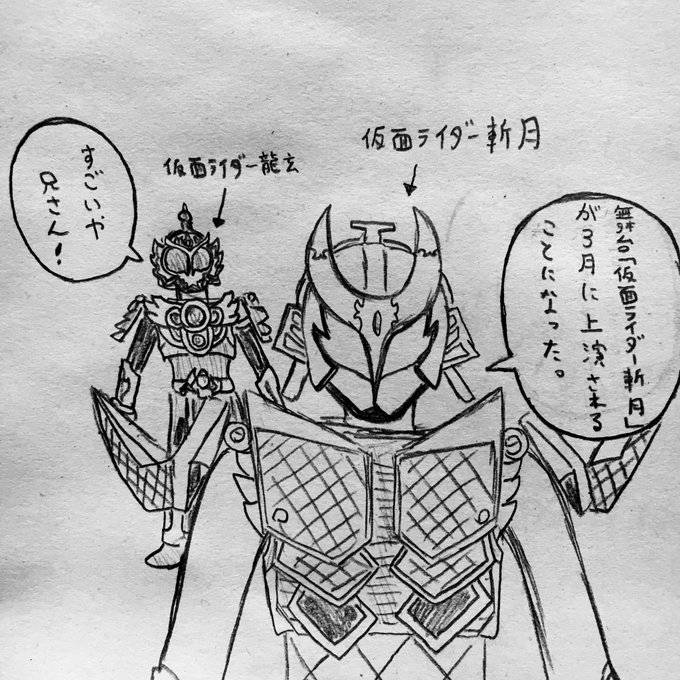 舞台「仮面ライダー斬月」
が3月に上演される
ことになった。
仮面ライダー斬月
仮面ライダー龍玄
すごいや
兄さん!